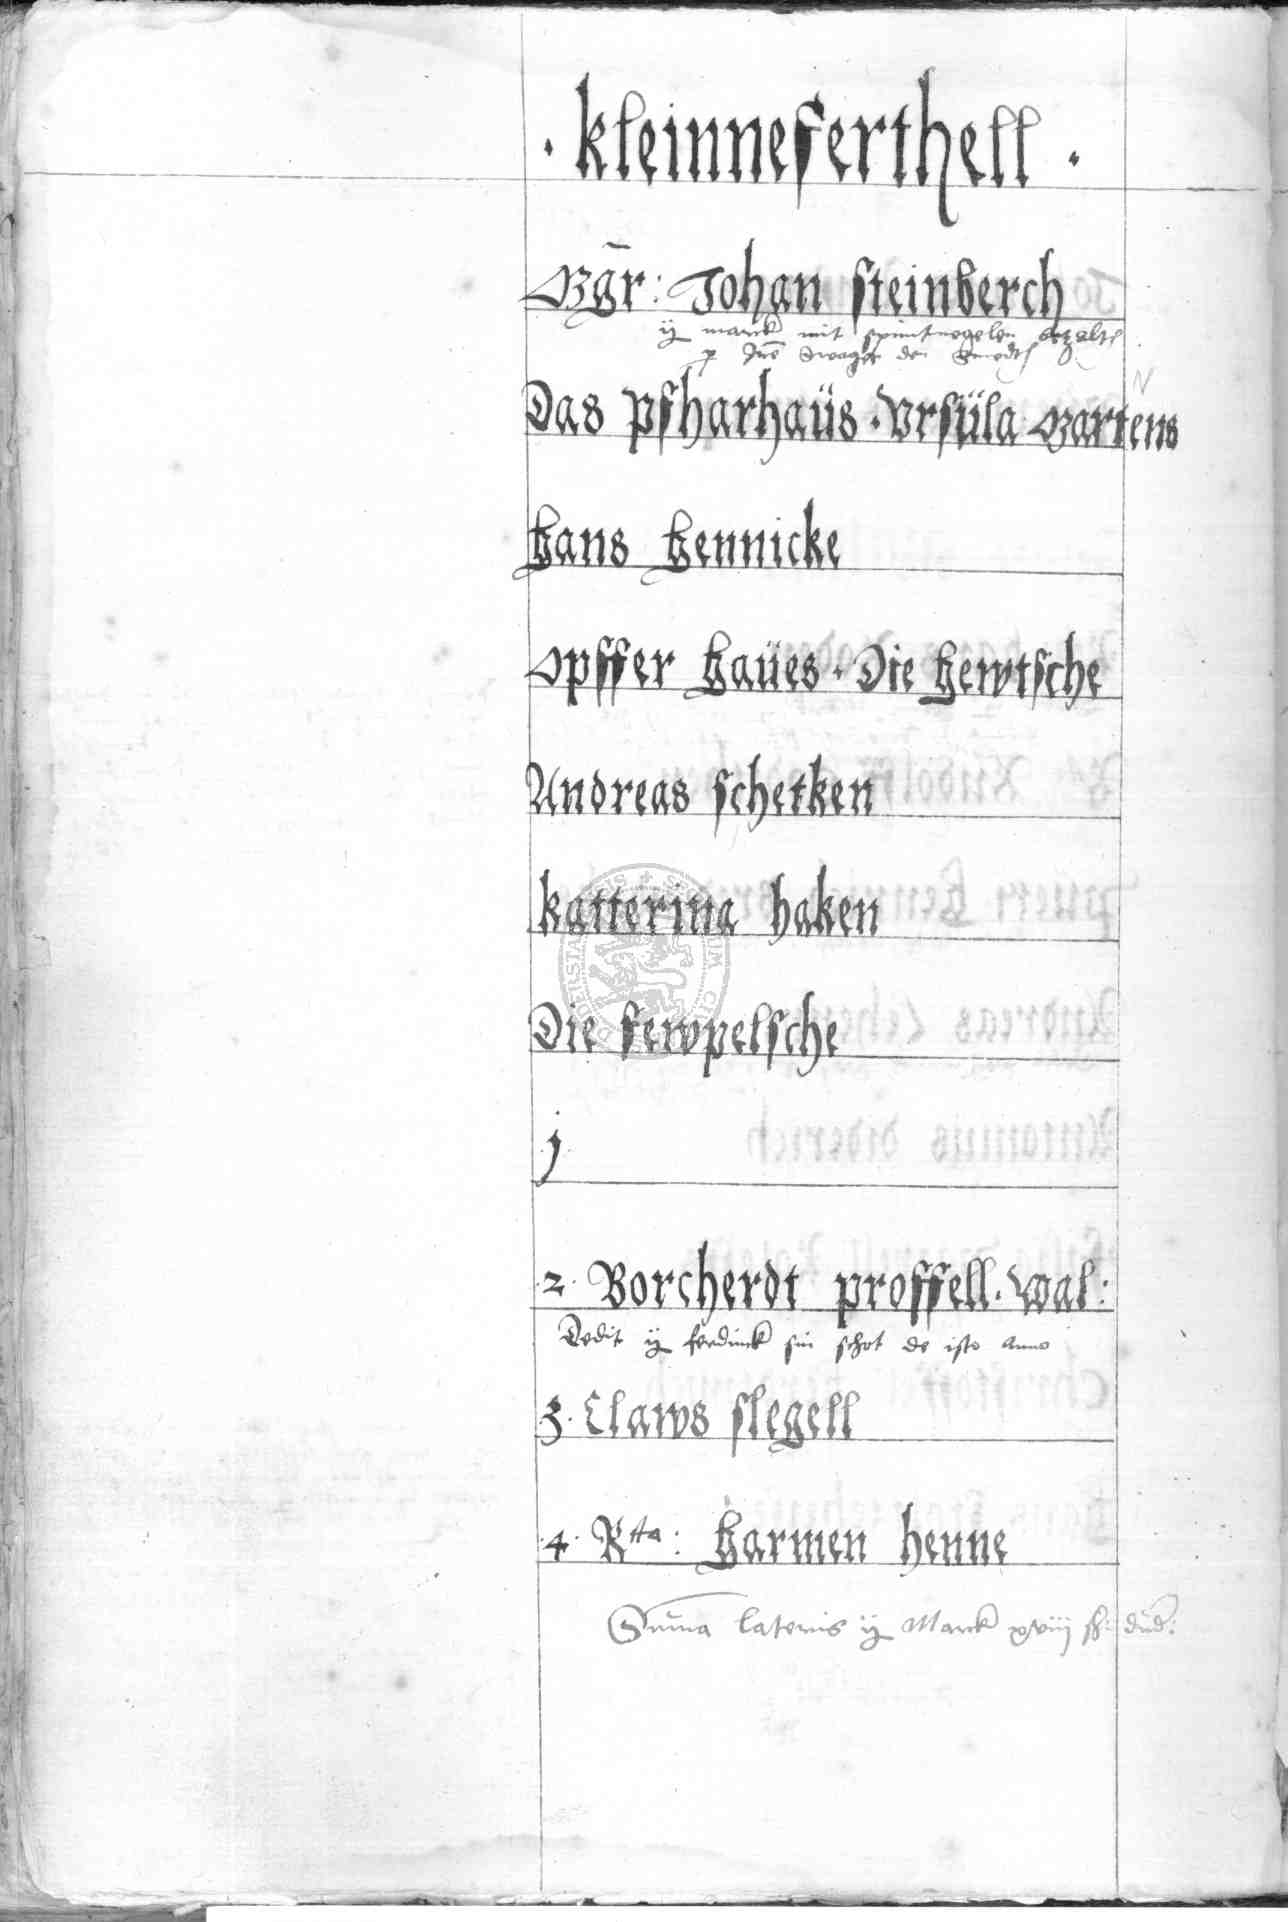 · kleinneferthell ·
Mgr: Johan steinberch
ij marck mit spintnegelen betzalt
Das Pfharhaüs · Vrsüla Martens
Hans Hennicke
Opffer Haües · Die Hewtsche
Andreas schetken
katterina haken
Die fewpelsche
j
·2· Borcherdt proffell · wal:
Dedit ij ferdinck sin schot de isto anno
3 · Claws slegell
·4· Rtta: Harmen henne
Summa lateris ij Marck xviij ß: